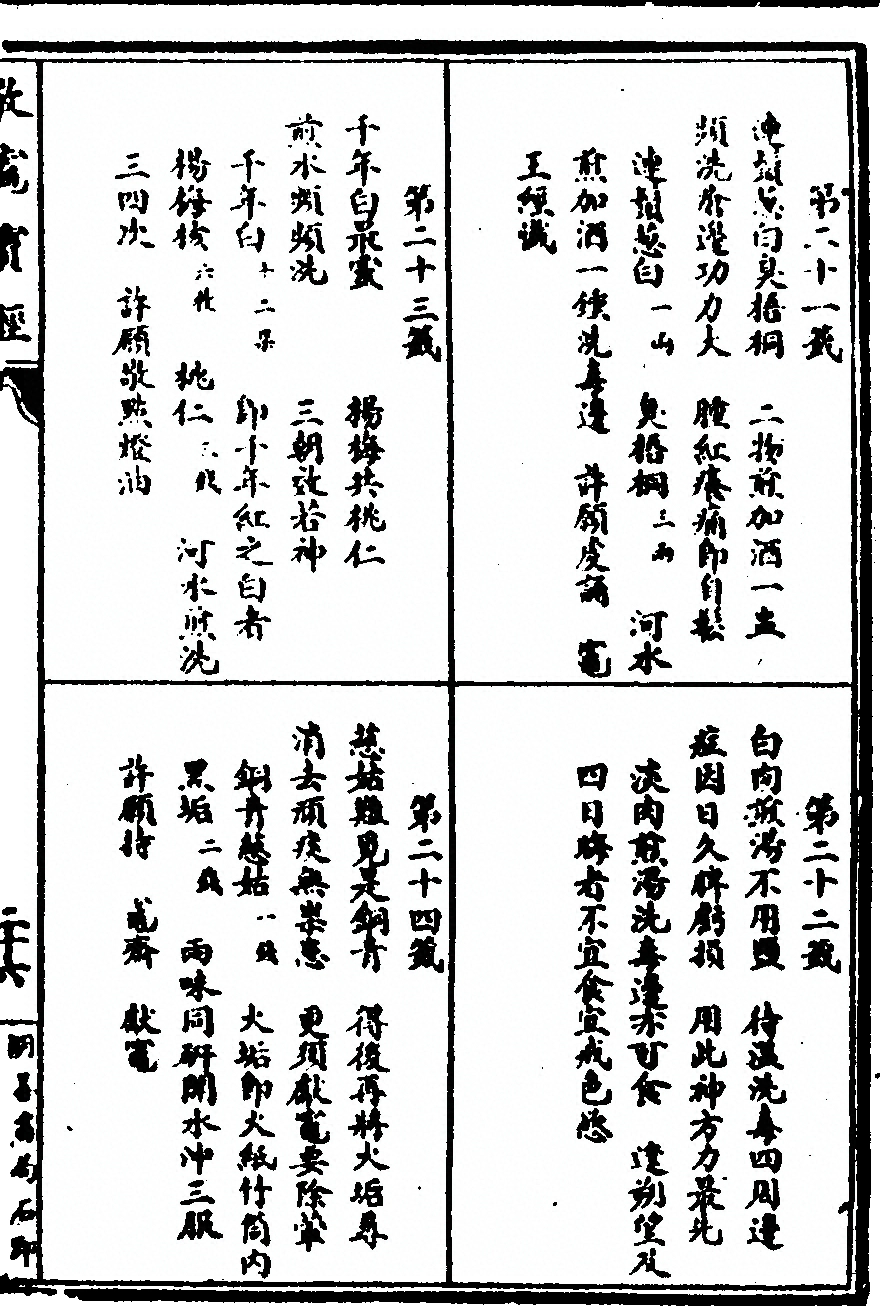 第二十一籤
連鬚葱白臭梧桐　二物煎加酒一盅
頻洗瘡邊功力大　腫紅癢痛即自鬆
連鬚葱白一兩　臭梧桐三兩　河水
煎加酒一鍾洗毒邊　許願虔誦　竈
王經懺
第二十二籤
白肉煎湯不用鹽　待溫洗毒四周邊
症因日久脾虧損　用此神方力最先
淡肉煎湯洗毒邊亦可食　逢朔望及
四日病者不宜食宜戒色慾
第二十三籤
千年白最靈　楊梅共桃仁
煎水頻頻洗　三朝效若神
千年白十二朵　即千年紅之白者
楊梅核六枚　桃仁三錢　河水煎洗
三四次　許願敬點燈油
第二十四籤
慈姑難覓是銅青　得後再將火垢尋
消去頑痰無祟患　更須獻竈要除葷
銅青慈姑一錢　火垢即火紙竹筒內
黑垢二錢　兩味同研開水沖三服
許願持　竈齋　獻竈
敬竈寶經
二十六
明善書局石印